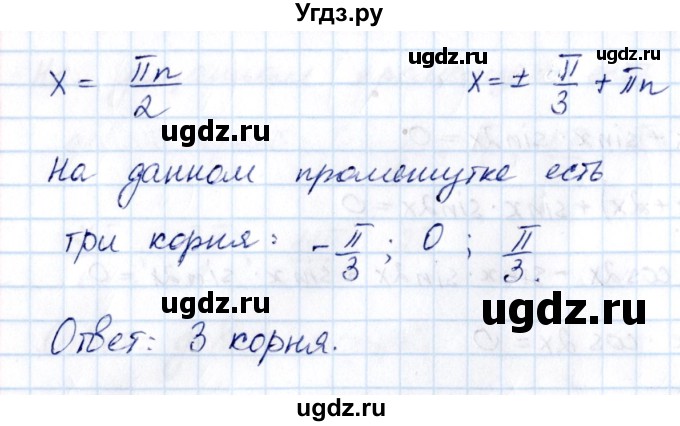 Угдз.ру
ugdz.ru ugdz.ru
x = πn/2 x = ± π/3 + πn
ugdz.ru
На данном промежутке есть
ugdz.ru
три корня: -π/3; 0; π/3.
ugdz.ru ugdz.ru
Ответ: 3 корня.
ugdz.ru